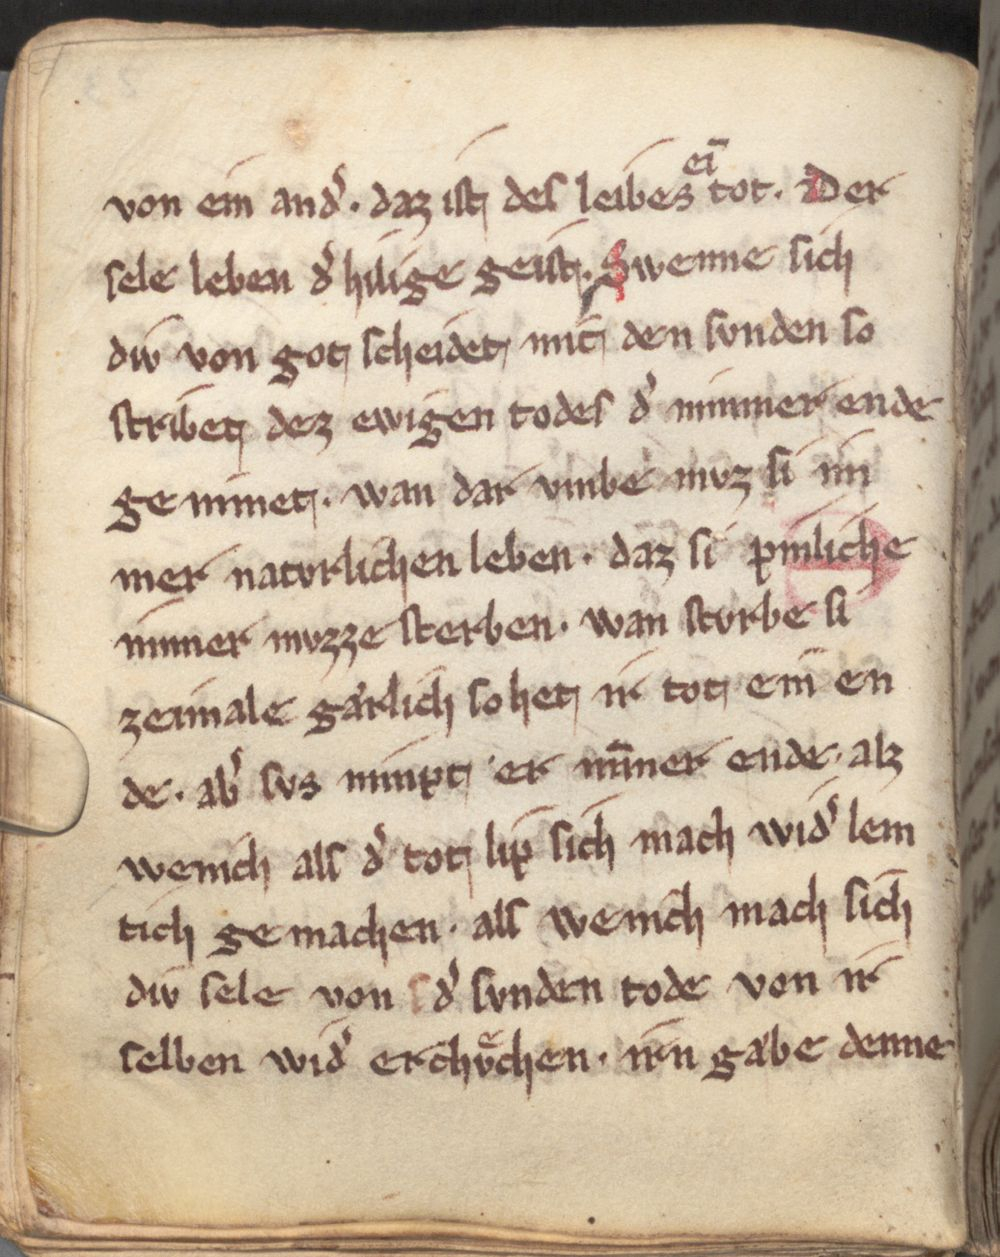 von ein andˀ. daz ist des leibes ein tot. Der
sele leben dˀ hilige geist. Swenne sich
div von got scheidet mit den svnden so
stribet dez ewigen todes dˀ nimmer ende
ge nimet. wan dar vmbe mvz si im
mer natvrlichen leben. daz si pinliche
immer mvzze sterben. wan stvrbe si
zeimale gærlich so het ir tot ein en
de. abˀ svs nimpt er nim̄er ende. alz
wenich als dˀ tot lip sich mach widˀ lem
tich ge machen. als wenich mach sich
div sele von dˀ svnden tode von ir
selben widˀ erchvͤchen. irn gæbe denne